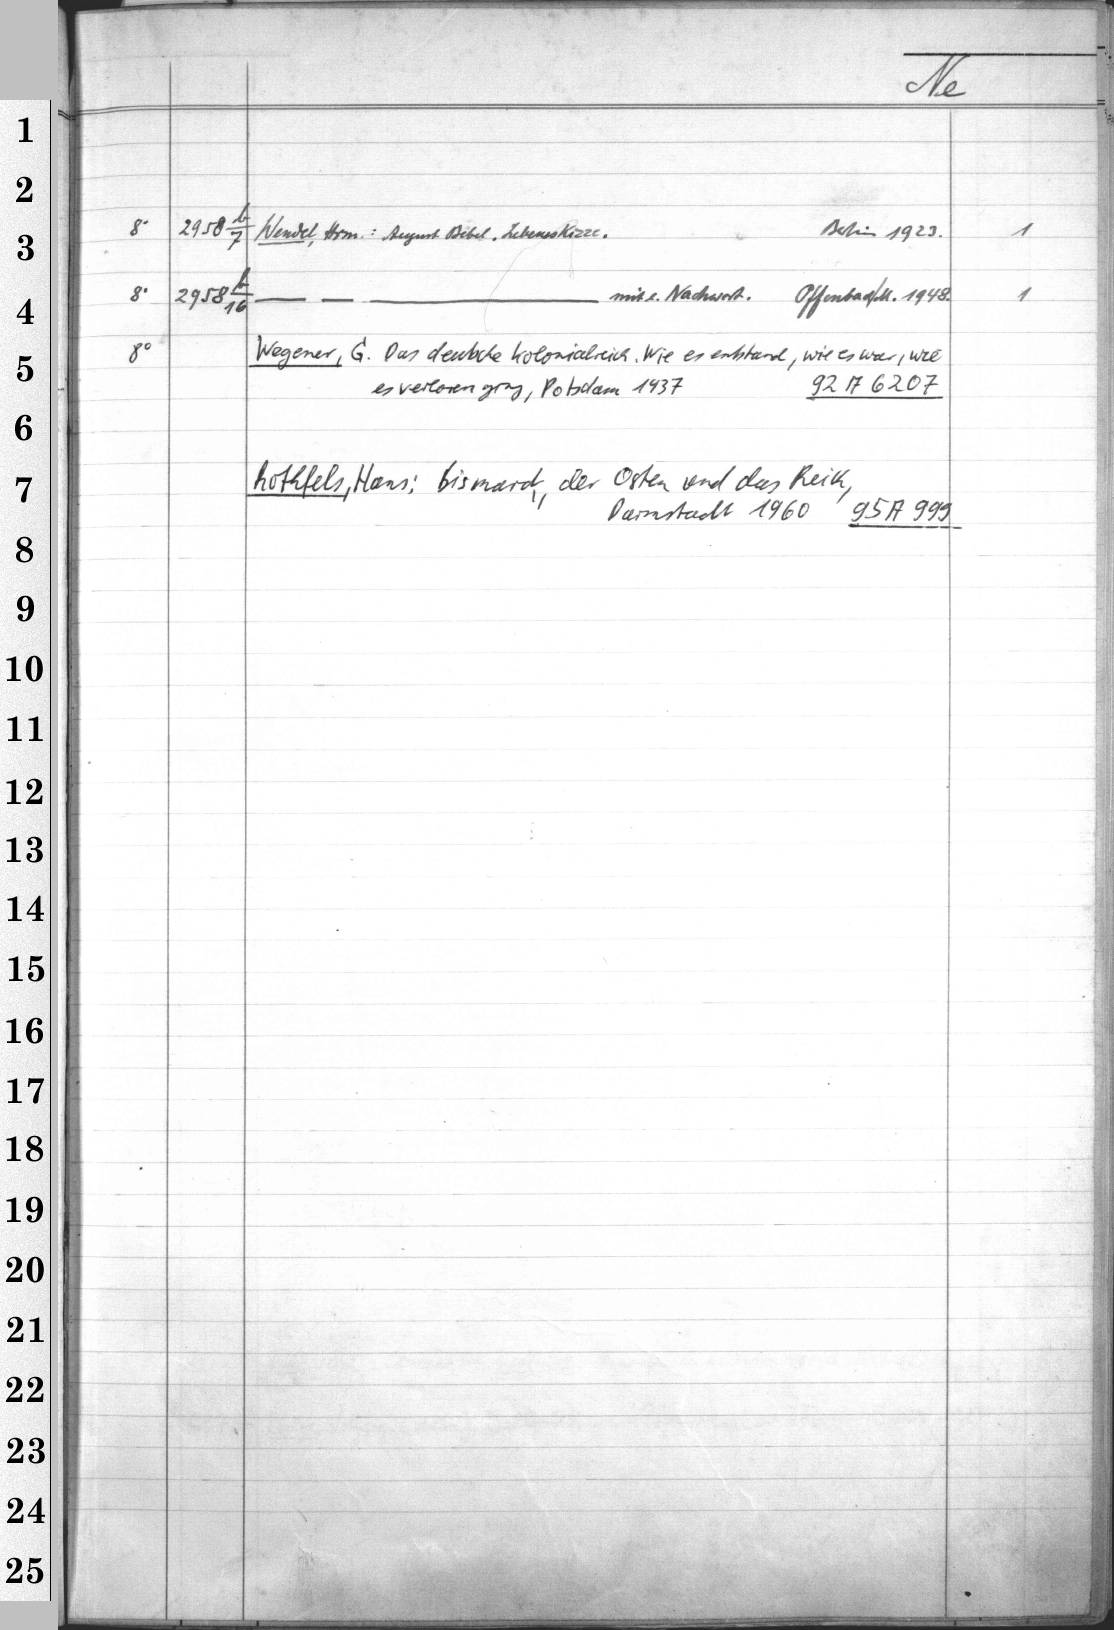 Ne
1
2
3
8° 2958 b/7 Wendel, Hrm.: August Bebel. Lebensskizze. Berlin 1923. 1
4
8° 2958 b/16 — — — mit e. Nachwort. Offenbach/M. 1948. 1
5
8° Wegener, G. Das deutsche Kolonialreich. Wie es entstand, wie es war, wie
es verloren ging, Potsdam 1937 92 A 6207
6
7
Rothfels, Hans: Bismarck, der Osten und das Reich,
Darmstadt 1960 95 A 999
8
9
10
11
12
13
14
15
16
17
18
19
20
21
22
23
24
25